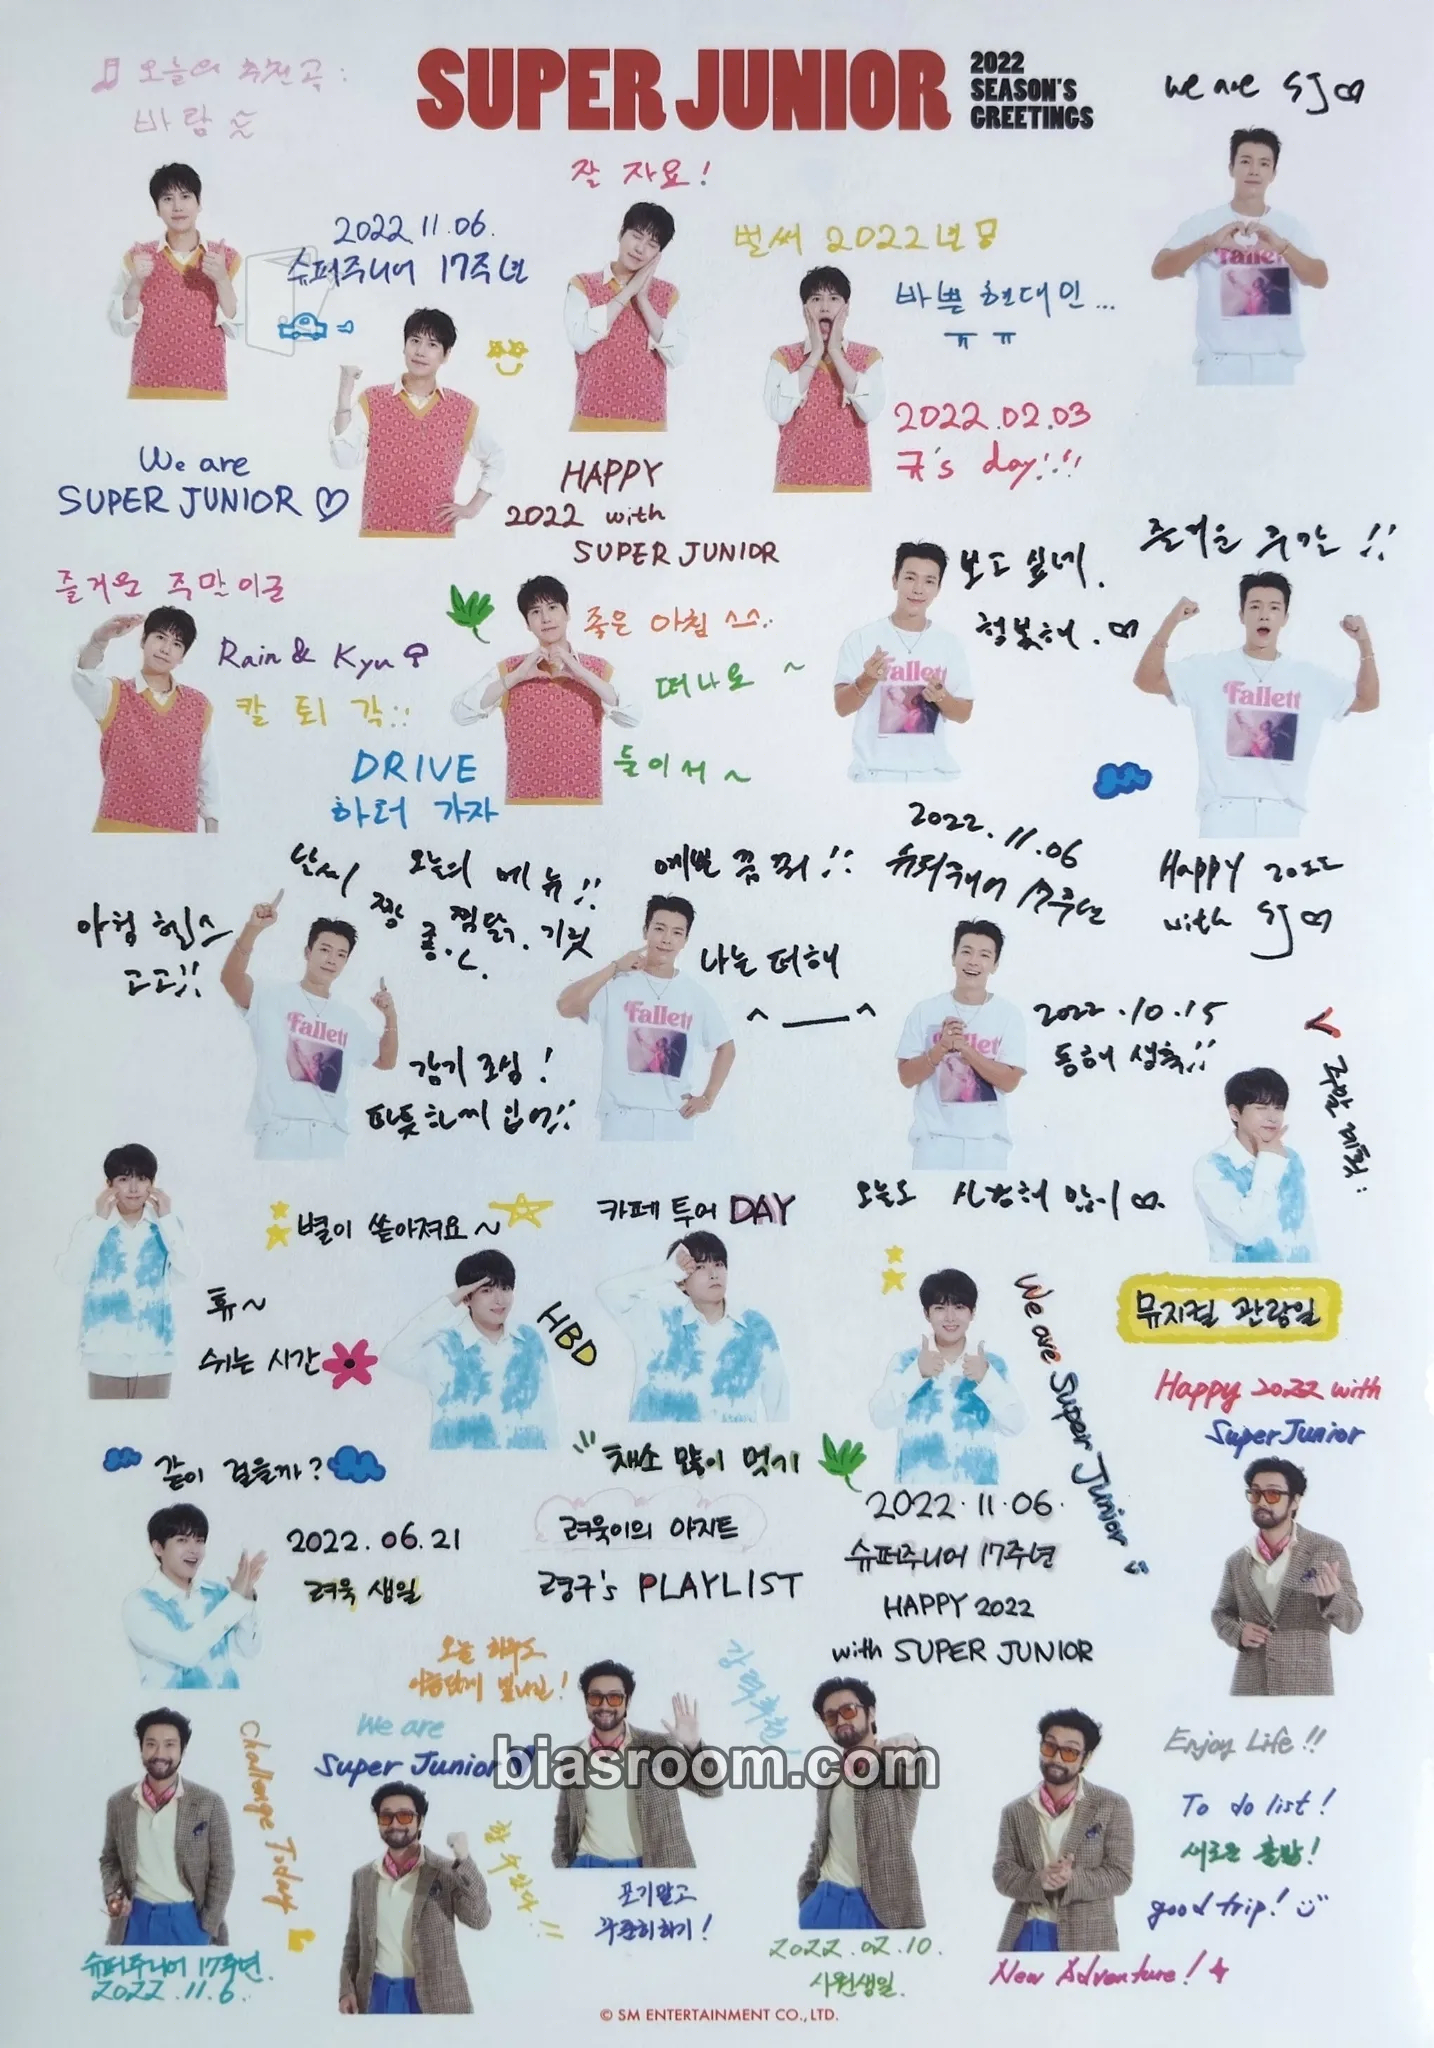 SUPER JUNIOR
2022
SEASON'S
GREETINGS
오늘의 추천곡:
바람~
we are SJ
잘 자요!
2022.11.06.
슈퍼주니어 17주년
벌써 2022년
바쁜 현대인...
ㅠㅠ
2022.02.03
K's day!!!
We are
SUPER JUNIOR♡
HAPPY
2022 with
SUPER JUNIOR
즐거운 주말이군
Rain & Kyu
칼 퇴 각!!
DRIVE
하러 가자
좋은 아침 ^^..
떠나요 ~
둘이서 ~
보고 싶네.
행복해.
즐거운 주간 !!
2022.11.06
슈퍼주니어 17주년
Happy 2022
with SJ
아침 헬스
고고!!
날씨
짱
좋.ㄷ.
오늘의 메뉴!!
찜닭.
예쁜 꿈 꿔!!
나는 동해
^ ___ ^
2022.10.15
동해 생축!!
감기 조심!
따뜻하게 입어!!
주말 계획:
별이 쏟아져요~
카페 투어 DAY
오늘도 사랑해 많이
휴~
쉬는 시간
HBD
We are Super Junior
뮤지컬 관람일
Happy 2022 with
Super Junior
같이 걸을까?
채소 많이 먹기
2022.06.21
려욱 생일
려욱이의 아지트
령구's PLAYLIST
2022.11.06.
슈퍼주니어 17주년
HAPPY 2022
with SUPER JUNIOR
오늘 하루도
아름답게 빛나린!
강력추천!
We are
Super Junior
Challenge Today
할 수 있다.!!
포기말고
꾸준히하기!
슈퍼주니어 17주년.
2022.11.6.
2022.02.10.
시원생일.
Enjoy Life!!
To do list!
새로운 출발!
good trip!
New Adventure!
biasroom.com
© SM ENTERTAINMENT CO., LTD.